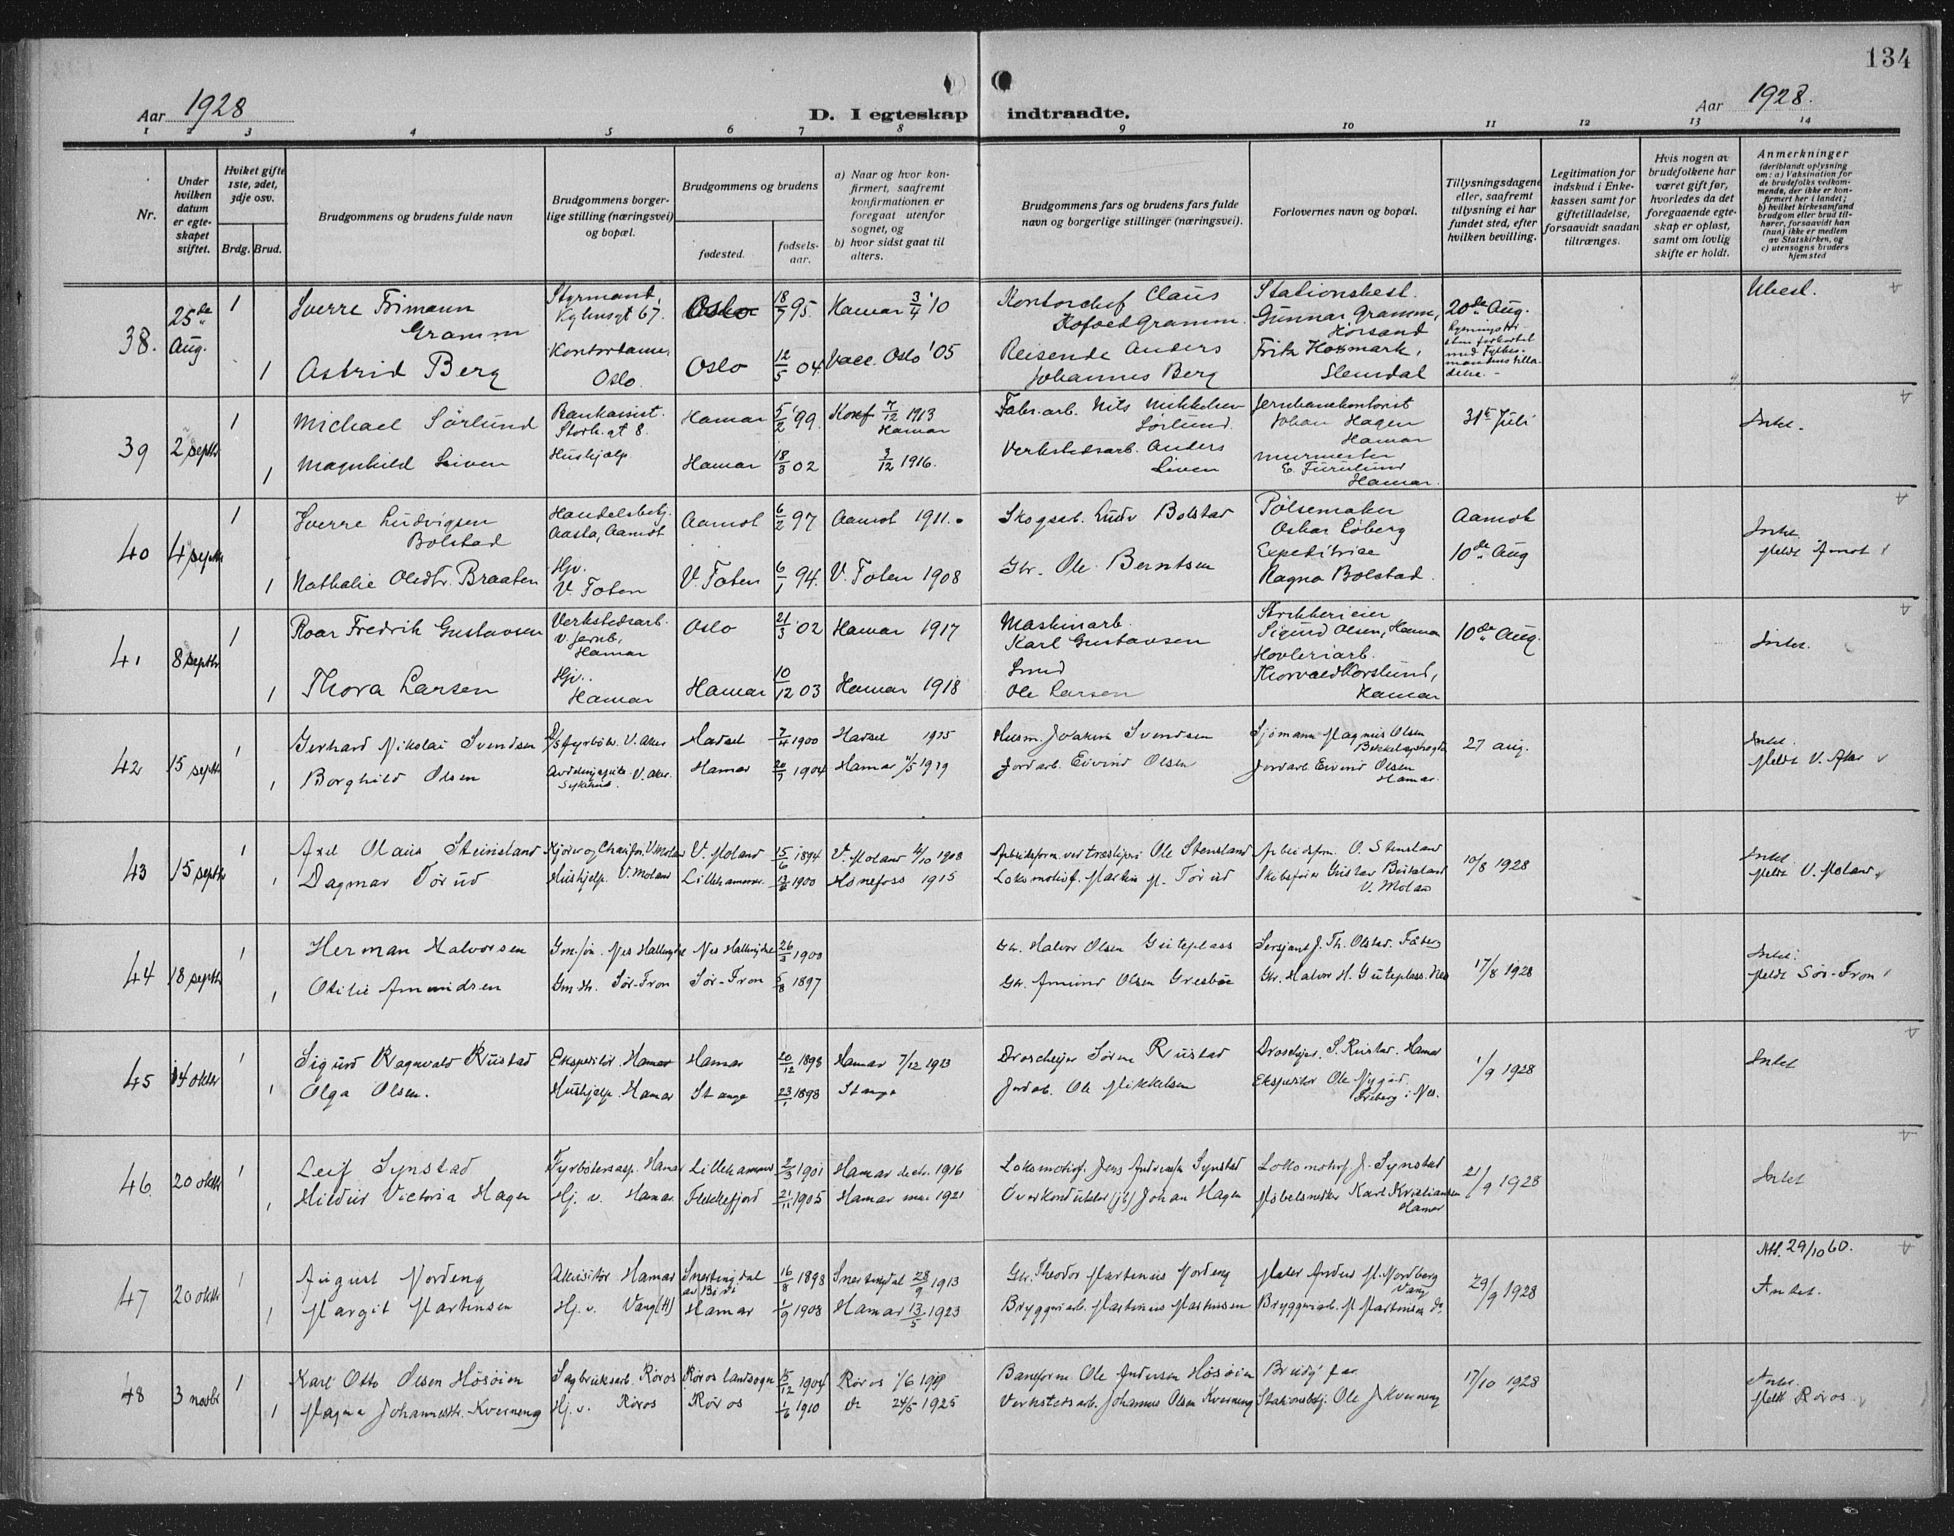 134
Aar 1928
D. I egteskap indtraadte.
Aar 1928.
1 2 3 4 5 6 7 8 9 10 11 12 13 14
Nr.
Under hvilken datum er egteskapet stiftet.
Hvilket gifte 1ste, 2det, 3dje osv.
Brdg. Brud.
Brudgommens og brudens fulde navn
Brudgommens borgerlige stilling (næringsvei) og bopæl.
Brudgommens og brudens
fødested.
fødselsaar.
a) Naar og hvor konfirmert, saafremt konfirmationen er foregaat utenfor sognet, og
b) hvor sidst gaat til alters.
Brudgommens fars og brudens fars fulde navn og borgerlige stillinger (næringsvei).
Forlovernes navn og bopæl.
Tillysningsdagene eller, saafremt tillysning ei har fundet sted, efter hvilken bevilling.
Legitimation for indskud i Enkekassen samt for giftetilladelse, forsaavidt saadan tiltrænges.
Hvis nogen av brudefolkene har været gift før, hvorledes da det foregaaende egteskap er opløst, samt om lovlig skifte er holdt.
Anmerkninger
(deriblandt oplysning om: a) Vaksination for de brudefolks vedkommende, der ikke er konfirmert her i landet; b) hvilket kirkesamfund brudgom eller brud tilhører, forsaavidt han (hun) ikke er medlem av Statskirken, og c) utensogns bruders hjemsted
38. 25de Aug. 1 Sverre Frimann Gramm Styrmand 67. Oslo 18/7 95. Hamar 3/4 '10 Kontorchef Claus Kofoed Gramm. Stationsbest. Gunnar Gramm, 20de Aug. Ubest.
1 Astrid Berg Kontordame Oslo. Oslo 12/5 04 Vacc. Oslo '05 Reisende Anders Johannes Berg Fritz Slemdal
39 2 septbr 1 Michael Sørlund Bankassist. Storh.gt 8. Hamar 5/2 '99. Konf 7/12 1913 Hamar Fabr.arb. Nils Mikkelsen Sørlund. Jernbanekontorist Johan Hagen Hamar 31te Juli Intet.
1 Magnhild Liven Hushjælp Hamar 18/3 02 3/12 1916. Verkstedsarb. Anders Liven Murmester E. Furulund Hamar.
40 4 septbr 1 Sverre Ludvigsen Bolstad Handelsbetj. Aasta, Aamot Aamot 6/2 97 Aamot 1911. Skogsarb. Ludv Bolstad Pølsemaker Oskar Løberg Aamot 10de Aug Intet. Meldt Amot
1 Nathalie Oledtr. Braaten Hjv. V. Toten V. Toten 6/1 94. V. Toten 1908 Gbr. Ole Berntsen Expeditrice Ragna Bolstad.
41 8 septbr 1 Roar Fredrik Gustavsen Verkstedsarb. v Jernb. Hamar Oslo 21/3 '02 Hamar 1917 Maskinarb. Karl Gustavsen Sigurd Olsen, Hamar 10de Aug. Intet.
1 Thora Larsen Hjv. Hamar Hamar 10/12 03 Hamar 1918 Smed Ole Larsen Høvleriarb. Thorvald Korslund, Hamar
42 15 septbr 1 Gerhard Nikolai Svendsen V. Aker Hadsel 7/4 1900 Hadsel 1915 Husm. Joakim Svendsen Sjømann Magnus Olsen 27 aug. Intet. Meldt V. Aker
1 Borghild Olsen V. Aker Sykehus. Hamar 20/3 1904 Hamar 1919 Jordarb. Eivind Olsen Jordarb. Eivind Olsen Hamar.
43 15 septbr 1 Axel Olaus Steinsland V. Moland 15/6 1894 V. Moland 4/10 1908 Ole Stensland Arbeidsform. O. Stensland 10/8 1928 Intet Meldt V. Moland
1 Dagmar Tørud Hushjelp. V. Moland Lillehammer 1900 Hønefoss 1915 Lokomotivf. Martin M. Tørud Gustav V. Moland
44 18 septbr 1 Herman Halvorsen Gm.søn. Nes Hallingdal Nes Hallingdal 26/3 1900 Gbr. Halvor Olsen Guteplass Sersjant J. Th. Olstad. Fåberg 17/8 1928 Intet. Meldt Sør-Fron
1 Otilie Amundsen Gm.dt. Sør-Fron Sør-Fron 5/8 1897 Gbr. Amund Olsen Gbr. Halvor H. Guteplass. Nes
45 14 oktbr 1 Sigurd Ragnvald Rustad Ekspeditør Hamar Hamar 20/12 1898 Hamar 7/12 1913 Droscheejer Søren Rustad Droscheejer. S. Rustad. Hamar 1/9 1928 Intet
1 Olga Olsen. Hushjelp. Hamar Stange 23/1 1898 Stange Jordarb. Ole Mikkelsen Ekspeditør Ole Nygård. i Nes.
46. 20 oktbr 1 Leif Synstad Fyrbøterasp. Hamar Lillehammer 2/3 1901 Hamar decbr. 1916 Lokomotivf. Jens Andreas Synstad Lokomotivf J. Synstad 21/9 1928 Intet
1 Hildur Victoria Hagen Hj. v. Hamar Flekkefjord 21/11 1905 Hamar mai 1921 Overkonduktør (jb) Johan Hagen Møbelsnekker Karl Kristiansen Hamar
47 20 oktbr 1 August Nordeng Akvisitør Hamar Snertingdal av Biri 16/8 1898 Snertingdal 28/9 1913 Gbr. Theodor Martinius Nordeng Maler Anders M. Nordberg Vang 29/9 1928 Att. 29/10 60. Intet.
1 Margit Martinsen Hj. v. Vang (H) Hamar 1/9 1908 Hamar 13/5 1923 Bryggeriarb. Martinus Martinsen Bryggeriarb. M Martinsen do.
48 3 novbr 1 Karl Otto Olsen Høsøien Sagbruksarb. Røros Røros landsogn 15/12 1904 Røros 1/6 19 Baneform. Ole Andersen Høsøien Brudg far 17/10 1928 Intet. Meldt Røros
1 Magna Johannesdtr. Kverneng Hj. v. Røros Røros 1/6 1910 do 24/5 1925 Verkstedsarb. Johannes Olsen Kverneng Stationsbtj. Ole J. Kverneng